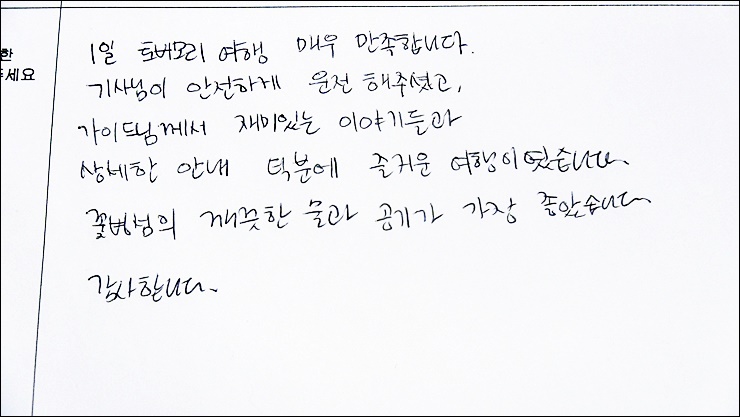 1일 토버모리 여행 매우 만족합니다.
한
주세요
기사님이 안전하게 운전 해주셨고,
가이드님께서 재미있는 이야기들과
상세한 안내 덕분에 즐거운 여행이였습니다.
꽃병섬의 깨끗한 물과 공기가 가장 좋았습니다
감사합니다.